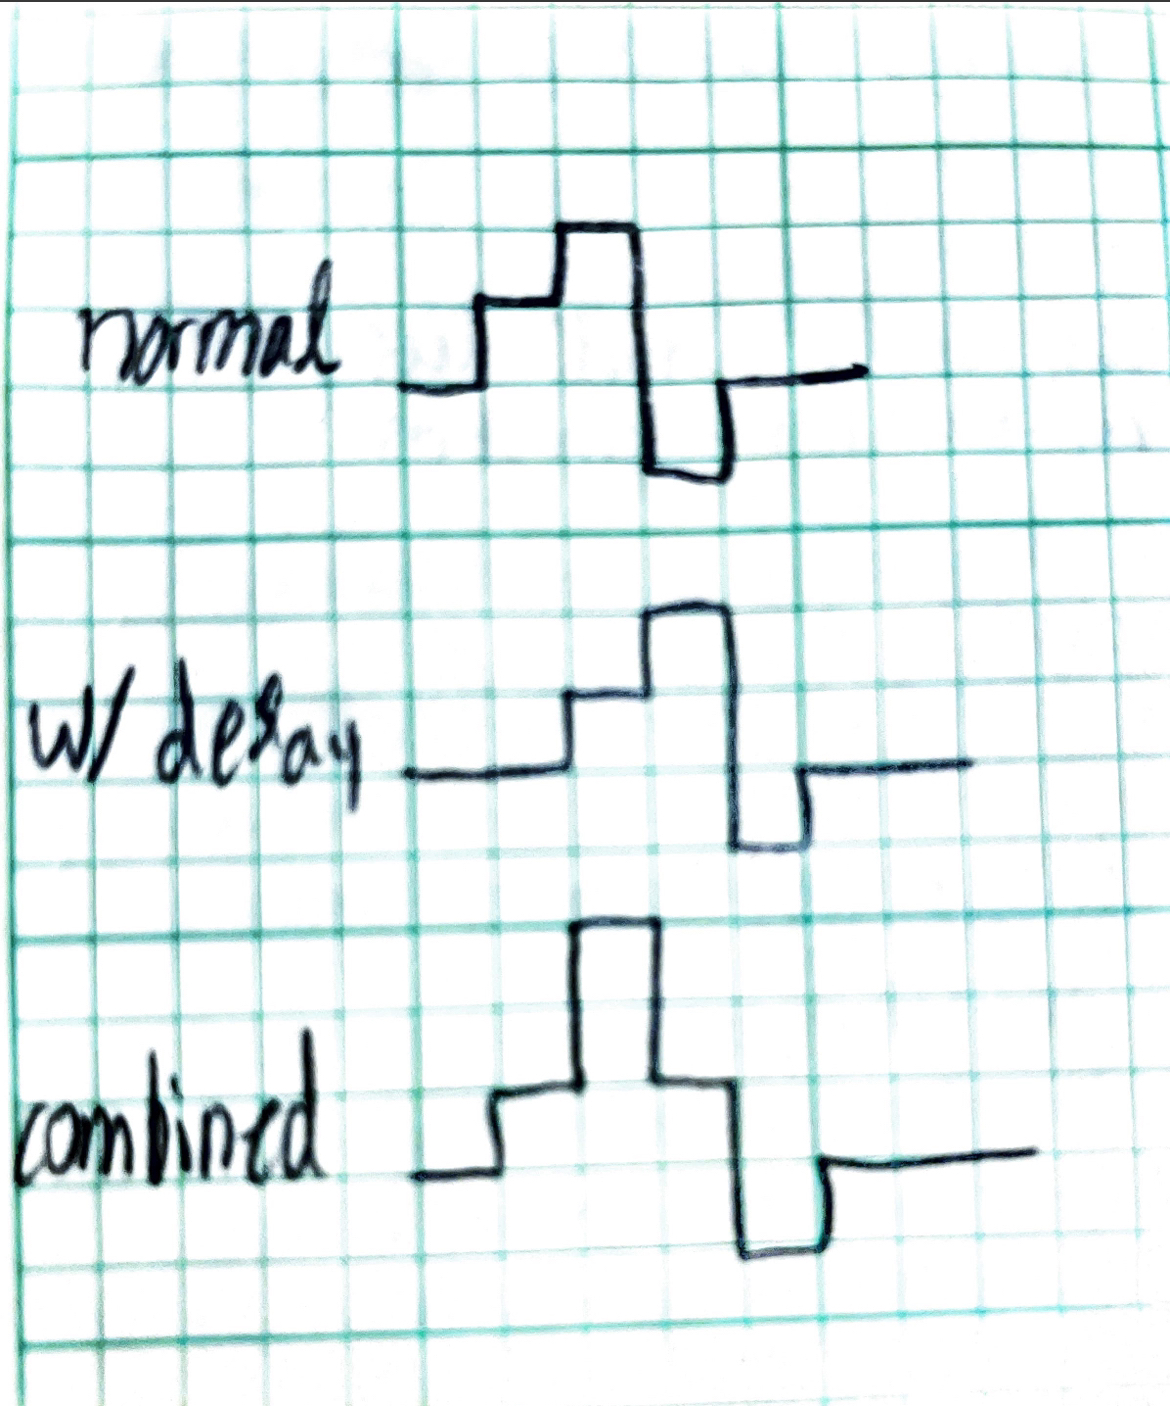 normal
w/ delay
combined